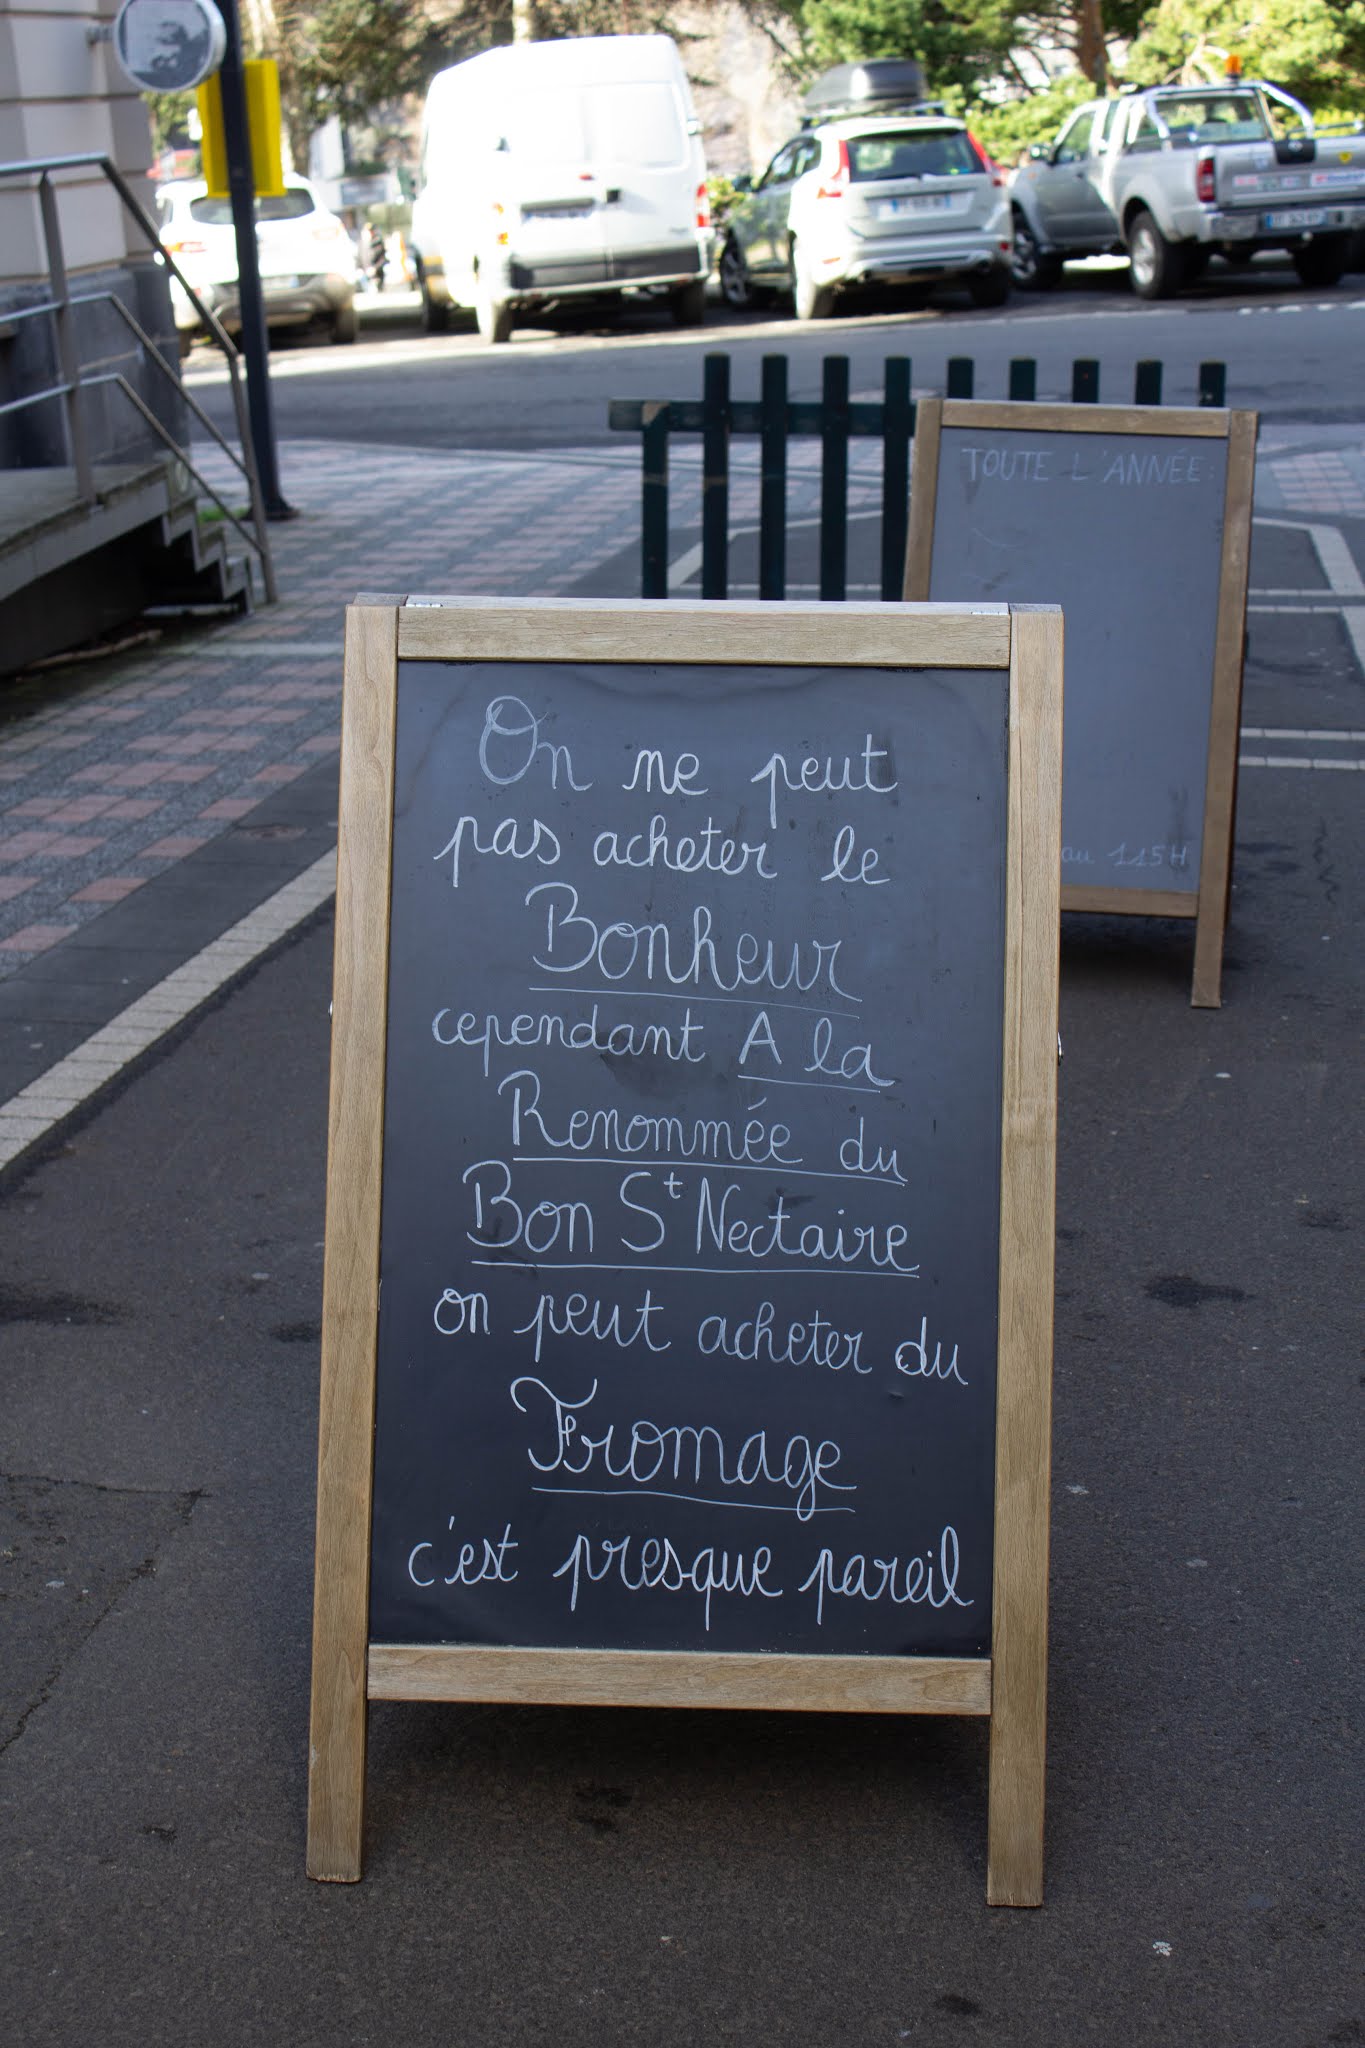 On ne peut
pas acheter le
Bonheur
cependant A la
Renommée du
Bon St Nectaire
on peut acheter du
Fromage
c'est presque pareil
TOUTE L'ANNÉE:
au 115H